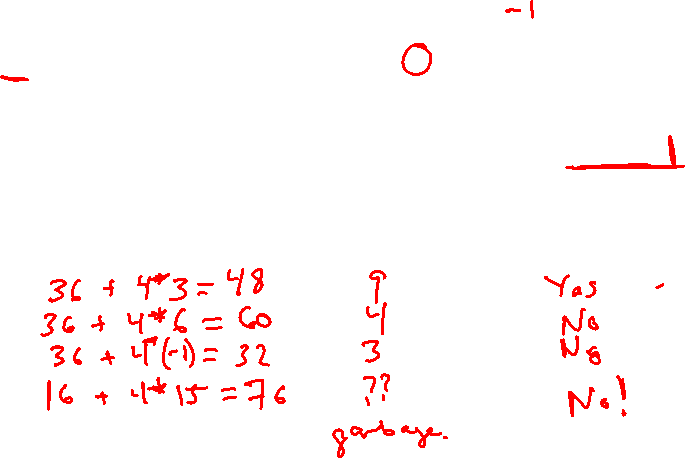 -1
0
36 + 4*3 = 48 9 Yes
36 + 4*6 = 60 4 No
36 + 4*(-1) = 32 3 No
16 + 4*15 = 76 ?? No!
garbage.